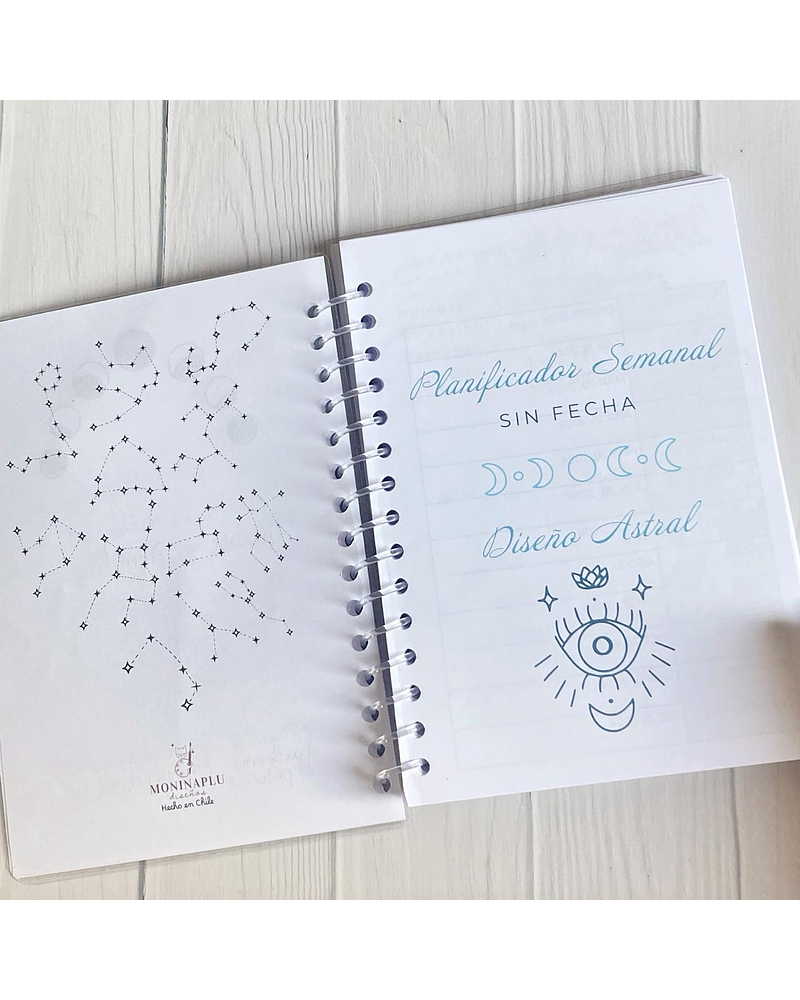 MONINAPLU
diseños
Hecho en Chile
Planificador Semanal
SIN FECHA
Diseño Astral